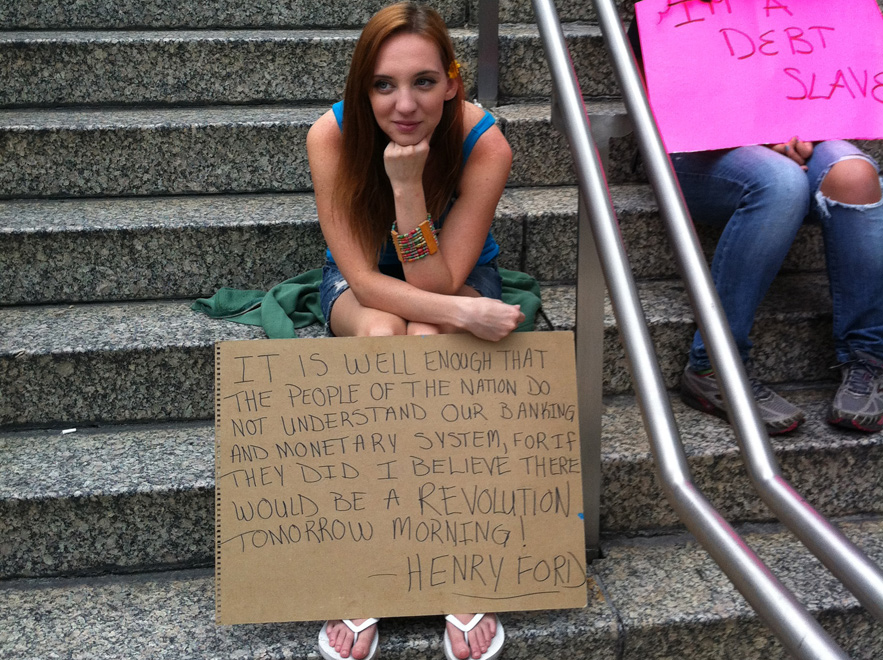 IT IS WELL ENOUGH THAT
THE PEOPLE OF THE NATION DO
NOT UNDERSTAND OUR BANKING
AND MONETARY SYSTEM, FOR IF
THEY DID I BELIEVE THERE
WOULD BE A REVOLUTION
TOMORROW MORNING!
—HENRY FORD
I'M A
DEBT
SLAVE